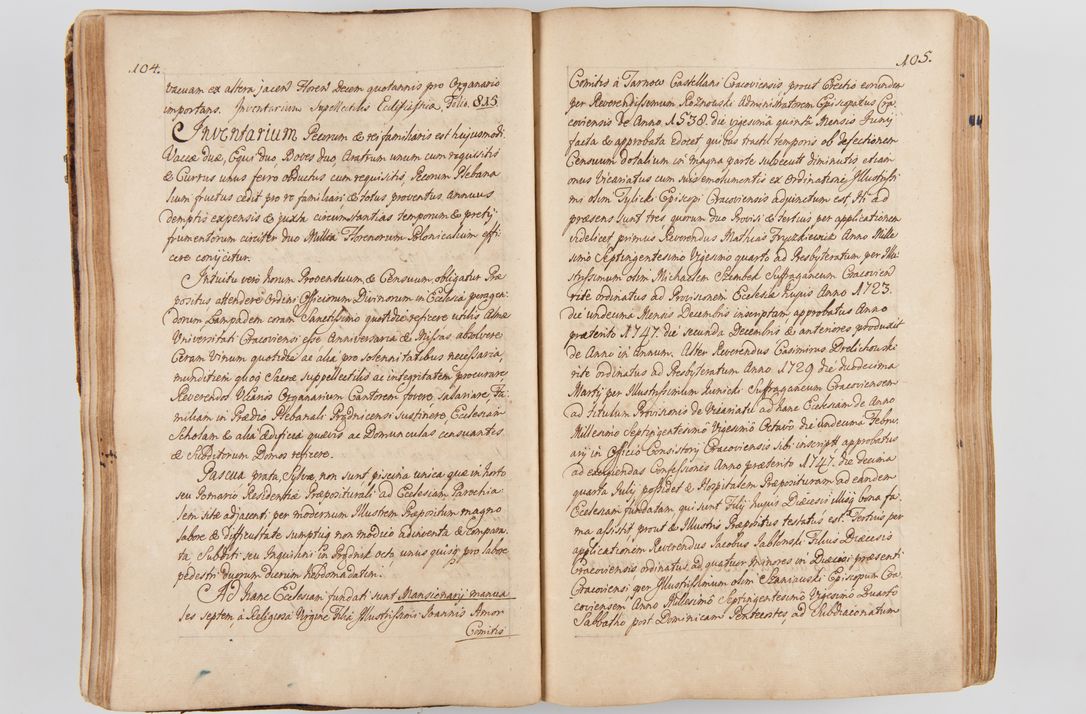 104.
vacuam ex altera jacen: Floren: decem quotannis pro Organario
importans. Inventarium Supellectilis Ecclesiasticæ Folio. 815
Inventarium Pecorum & rei familiaris est hujusmodi.
Vaccæ duæ, Equi duo, Boves duo, Aratrum unum cum requisitis
& Currus unus ferro obductus cum requisitis, Pecorum Plebana
lium fructus cedit pro re familiari & totus proventus annuus
demptis expensis & juxta circumstantias temporum & pretij
frumentorum circiter duo Millia Florenorum Polonicalium effi
cere conijcitur.
Intuitu vero horum Proventuum & Censuum, obligatur Præ
positus attendere Ordini Officiorum Divinorum in Ecclesia peragen
dorum Lampadem coram Sanctissimo quotidie reficere utilis Almæ
Universitati Cracoviensi esse Anniversaria & Missas absolvere
Ceram Vinum quotidie ac alia pro solennitatibus necessaria,
munditiem quoq Sacræ suppellectilis ac integritatem procurare
Reverendos Vicarios Organarium Cantorem fovere, salariare, Fa
miliam in Prædio Plebanali Prądnicensi sustinere, Ecclesiam
Scholam & alia ædificia quævis ac Domunculas censuantes
& Subditorum Domos reficere.
Pascua prata, Silvæ, non sunt piscina unica quæ in horto
seu Pomario Residentiæ Præpositurali ad Ecclesiam Parochia
lem sitæ adjacenti per modernum Illustrem Præpositum magno
labore & difficultate sumptuq non modico adinventa & Compara
ta, Subditi seu Inquilini in Prądnik octo unus quisq pro labore
pedestri duorum dierum hebdomadatim.
Ad hanc Ecclesiam fundati sunt Mansionarij manua
les septem à Religiosa Virgine Filia Illustrissimi Joannis Amor
Comitis
105.
Comitis à Tarnow Castellani Cracoviensis prout Erectio eorundem
per Reverendissimum Rożnowski Administratorem Episcopatus Cra
coviensis de Anno 1538. die vigesima quinta Mensis Junij
facta & approbata edocet quibus tractu temporis ob defectionem
Censuum dotalium in magna parte subsecuti diminutis etiam
onus Vicariatus cum suis emolumentis ex Ordinatione Illustrissi
mi olim Tylicki Episcopi Cracoviensis adjunctum est. Et ad
præsens sunt tres quorum duo Provisi & tertius per applicationem
videlicet primus Reverendus Mathias Fryczkiewicz Anno Mille
simo Septingentesimo Vigesimo quarto ad Presbyteratum per Illu
strissimum olim Michaelem Szembek Suffraganeum Cracovien
rite ordinatus ad Provisionem Ecclesiæ hujus Anno 1723.
die undecima Mensis Decembris inscriptam, approbatus Anno
præterito 1747. die secunda Decembris & anteriores produxit
de Anno in annum. Alter Reverendus Casimirus Prelichowski
rite ordinatus ad Presbyteratum Anno 1729 die duodecima
Martij per Illustrissimum Kunicki Suffraganeum Cracoviensem
ad titulum Provisionis de Vicariatu ad hanc Ecclesiam de Anno
Millesimo Septingentesimo Vigesimo Octavo die undecima Febru
arij in Officio Consistorij Cracoviensis sibi inscripti approbatus
ad excipiendas Confessiones Anno præterito 1747. die decima
quarta Julij possidet & Hospitalem Præposituram ad eandem
Ecclesiam fundatam qui sunt Filij hujus Diæcesis illiq bona fa
ma assistit prout & Illustris Præpositus testatus est. Tertius per
applicationem Reverendus Jacobus Jabłonski Filius Diæcesis
Cracoviensis ordinatus ad quatuor minores in Diæcesi præsenti
Cracoviensi per Illustrissimum olim Szaniawski Episcopum Cra
coviensem Anno Millesimo Septingentesimo Vigesimo Quarto
Sabbatho post Dominicam Pentecostes, ad Subdiaconatum